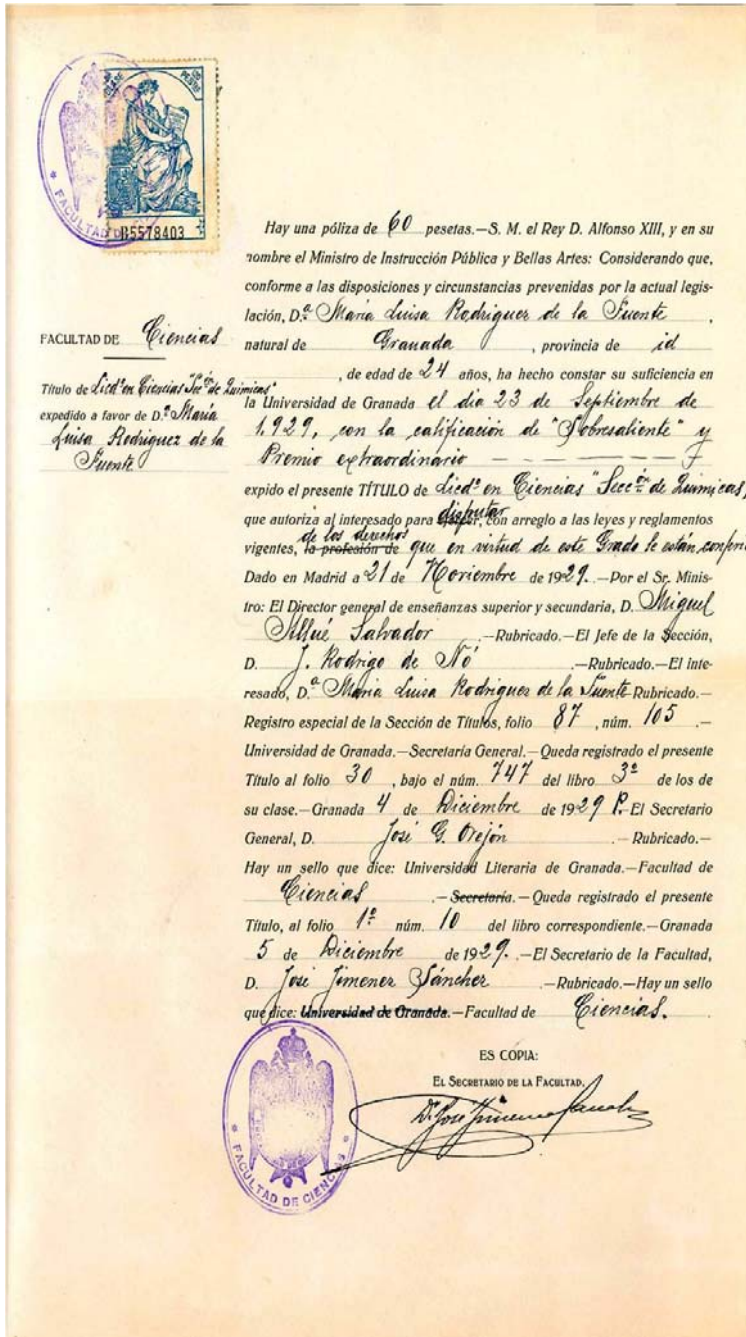 PESETAS
B5578403
FACULTAD D
FACULTAD DE Ciencias
Título de Licdº en Ciencias "Secc.ón de Químicas"
expedido a favor de D.ª María
Luisa Rodriguez de la
Fuente
Hay una póliza de 60 pesetas.—S. M. el Rey D. Alfonso XIII, y en su
nombre el Ministro de Instrucción Pública y Bellas Artes: Considerando que,
conforme a las disposiciones y circunstancias prevenidas por la actual legis-
lación, D.ª María Luisa Rodriguez de la Fuente ,
natural de Granada , provincia de id
, de edad de 24 años, ha hecho constar su suficiencia en
la Universidad de Granada el dia 23 de Septiembre de
1.929, con la calificación de "Sobresaliente" y
Premio extraordinario
expido el presente TÍTULO de Licdº en Ciencias "Secc.ón de Químicas,
que autoriza al interesado para disfrutar, con arreglo a las leyes y reglamentos
de los derechos
vigentes, la profesión de que en virtud de este Grado le están conferi
Dado en Madrid a 21 de Noviembre de 1929.—Por el Sr. Minis-
tro: El Director general de enseñanzas superior y secundaria, D. Miguel
Allué Salvador .—Rubricado.—El Jefe de la Sección,
D. J. Rodrigo de Nó .—Rubricado.—El inte-
resado, D.ª María Luisa Rodriguez de la Fuente Rubricado.—
Registro especial de la Sección de Títulos, folio 87 , núm. 105 .—
Universidad de Granada.—Secretaría General.—Queda registrado el presente
Título al folio 30 , bajo el núm. 747 del libro 3º de los de
su clase.—Granada 4 de Diciembre de 1929 P.—El Secretario
General, D. José G. Orejón .—Rubricado.—
Hay un sello que dice: Universidad Literaria de Granada.—Facultad de
Ciencias .—Secretaría.—Queda registrado el presente
Título, al folio 1º núm. 10 del libro correspondiente.—Granada
5 de Diciembre de 1929.—El Secretario de la Facultad,
D. José Jimenez Sánchez .—Rubricado.—Hay un sello
que dice: Universidad de Granada.—Facultad de Ciencias.
ES COPIA:
EL SECRETARIO DE LA FACULTAD,
Dr. José Jimenez Sanchez
FACULTAD DE CIENCIAS